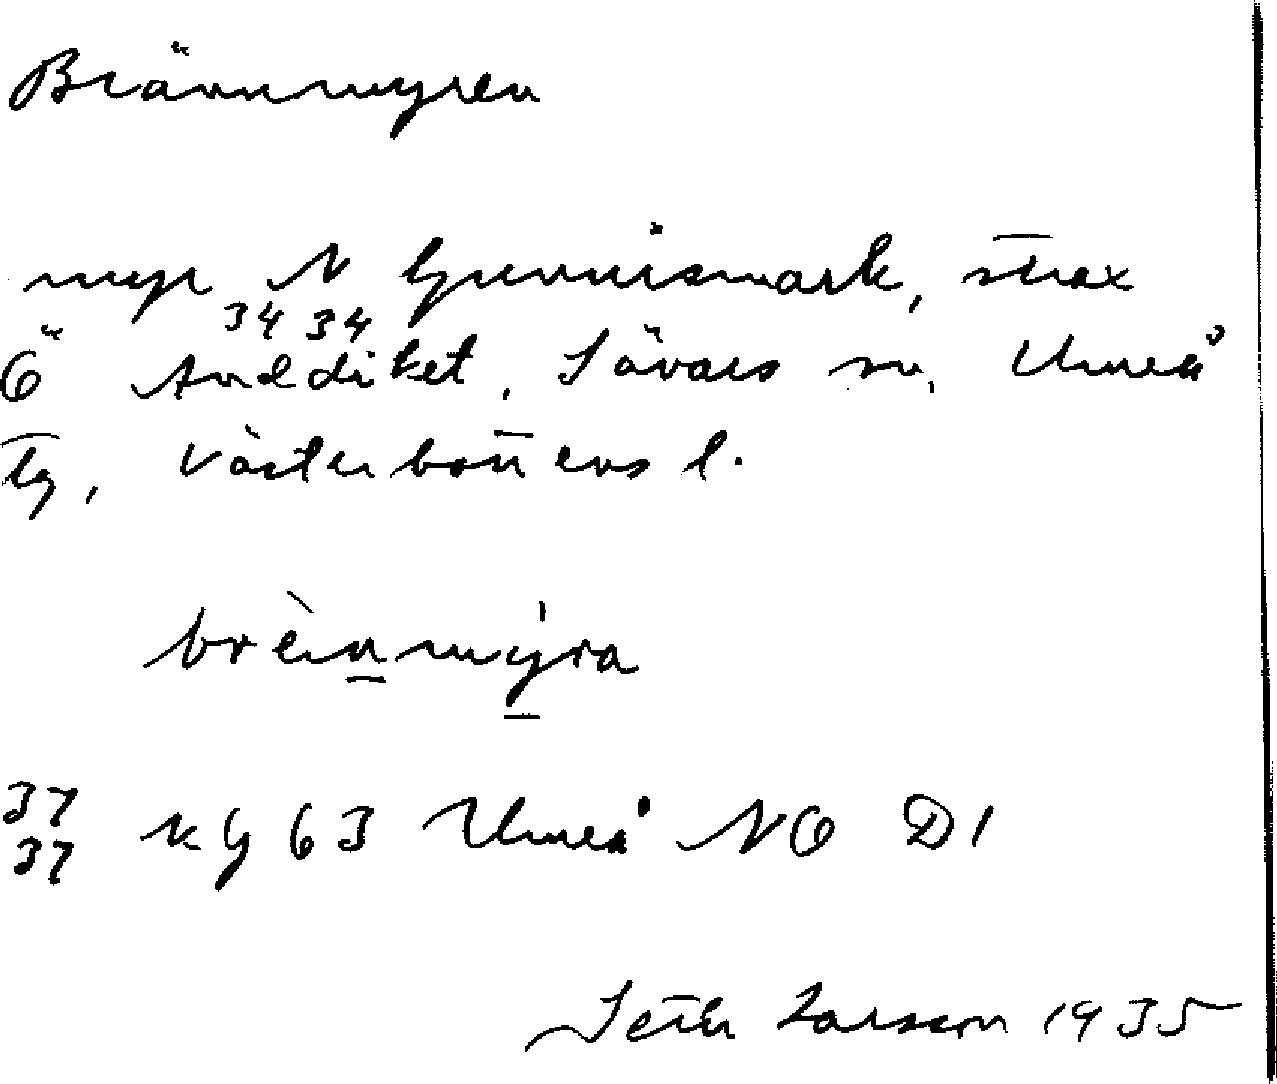 Brännmyren
myr N Gunnismark, strax
34 34
Ö Anddiket, Sävars sn, Umeå
tg, Västerbottens l.
brènmýra
37 kg 63 Umeå NO D1
37
Seth Larsson 1935